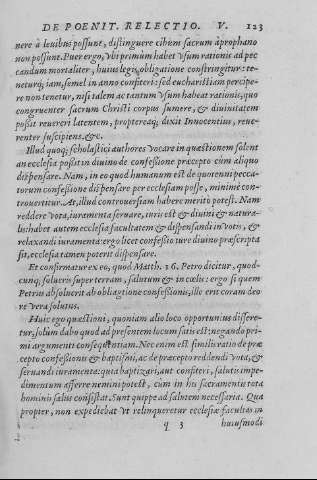 DE POENIT. RELECTIO. V. 123
nere à leuibus possunt, distinguere cibum sacrum à prophano
non possunt. Puer ergo, vbi primùm habet vsum rationis ad pec
candum mortaliter, huius legis obligatione constringitur: te-
neturq; iam, semel in anno confiteri: sed eucharistiam percipe-
re non tenetur, nisi talem ac tantum vsum habeat rationis, quo
congruenter sacrum Christi corpus sumere, & diuinitatem
possit reuereri latentem, proptereaq; dixit Innocentius, reue-
renter suscipiens. &c.
Illud quoq; scholastici authores vocare in quæstionem solent
an ecclesia possit in diuino de confessione præcepto cùm aliquo
dispensare. Nam, in eo quod humanum est de quotenni pecca-
torum confessione dispensare per ecclesiam posse, minimè con-
trouertitur. At, illud controuersiam habere meritò potest. Nam
reddere vota, iuramenta seruare, iuris est & diuini & natura-
lis: habet autem ecclesia facultatem & dispensandi in votis, &
relaxandi iuramenta: ergo licet confessio iure diuino præscripta
sit, ecclesia tamen poterit dispensare.
Et confirmatur ex eo, quod Matth. 16. Petro dicitur, quod-
cunq; solueris super terram, solutum & in cœlis: ergo si quem
Petrus absoluerit ab obligatione confessionis, ille erit coram deo
re vera solutus.
Huic ego quæstioni, quoniam alio loco opportuniùs differe-
tur, solùm dabo quod ad præsentem locum satis est: negando pri-
mi argumenti consequutionem. Nec enim est similis ratio de præ
cepto confessionis & baptismi, ac de præcepto reddendi vota, &
seruandi iuramenta: quia baptizari, aut confiteri, salutis impe-
dimentum asserre nemini potest, cum in his sacramentis tota
hominis salus consistat. Sunt quippe ad salutem necessaria. Qua
propter, non expediebat vt relinqueretur ecclesiæ facultas in
q 3 huiusmodi